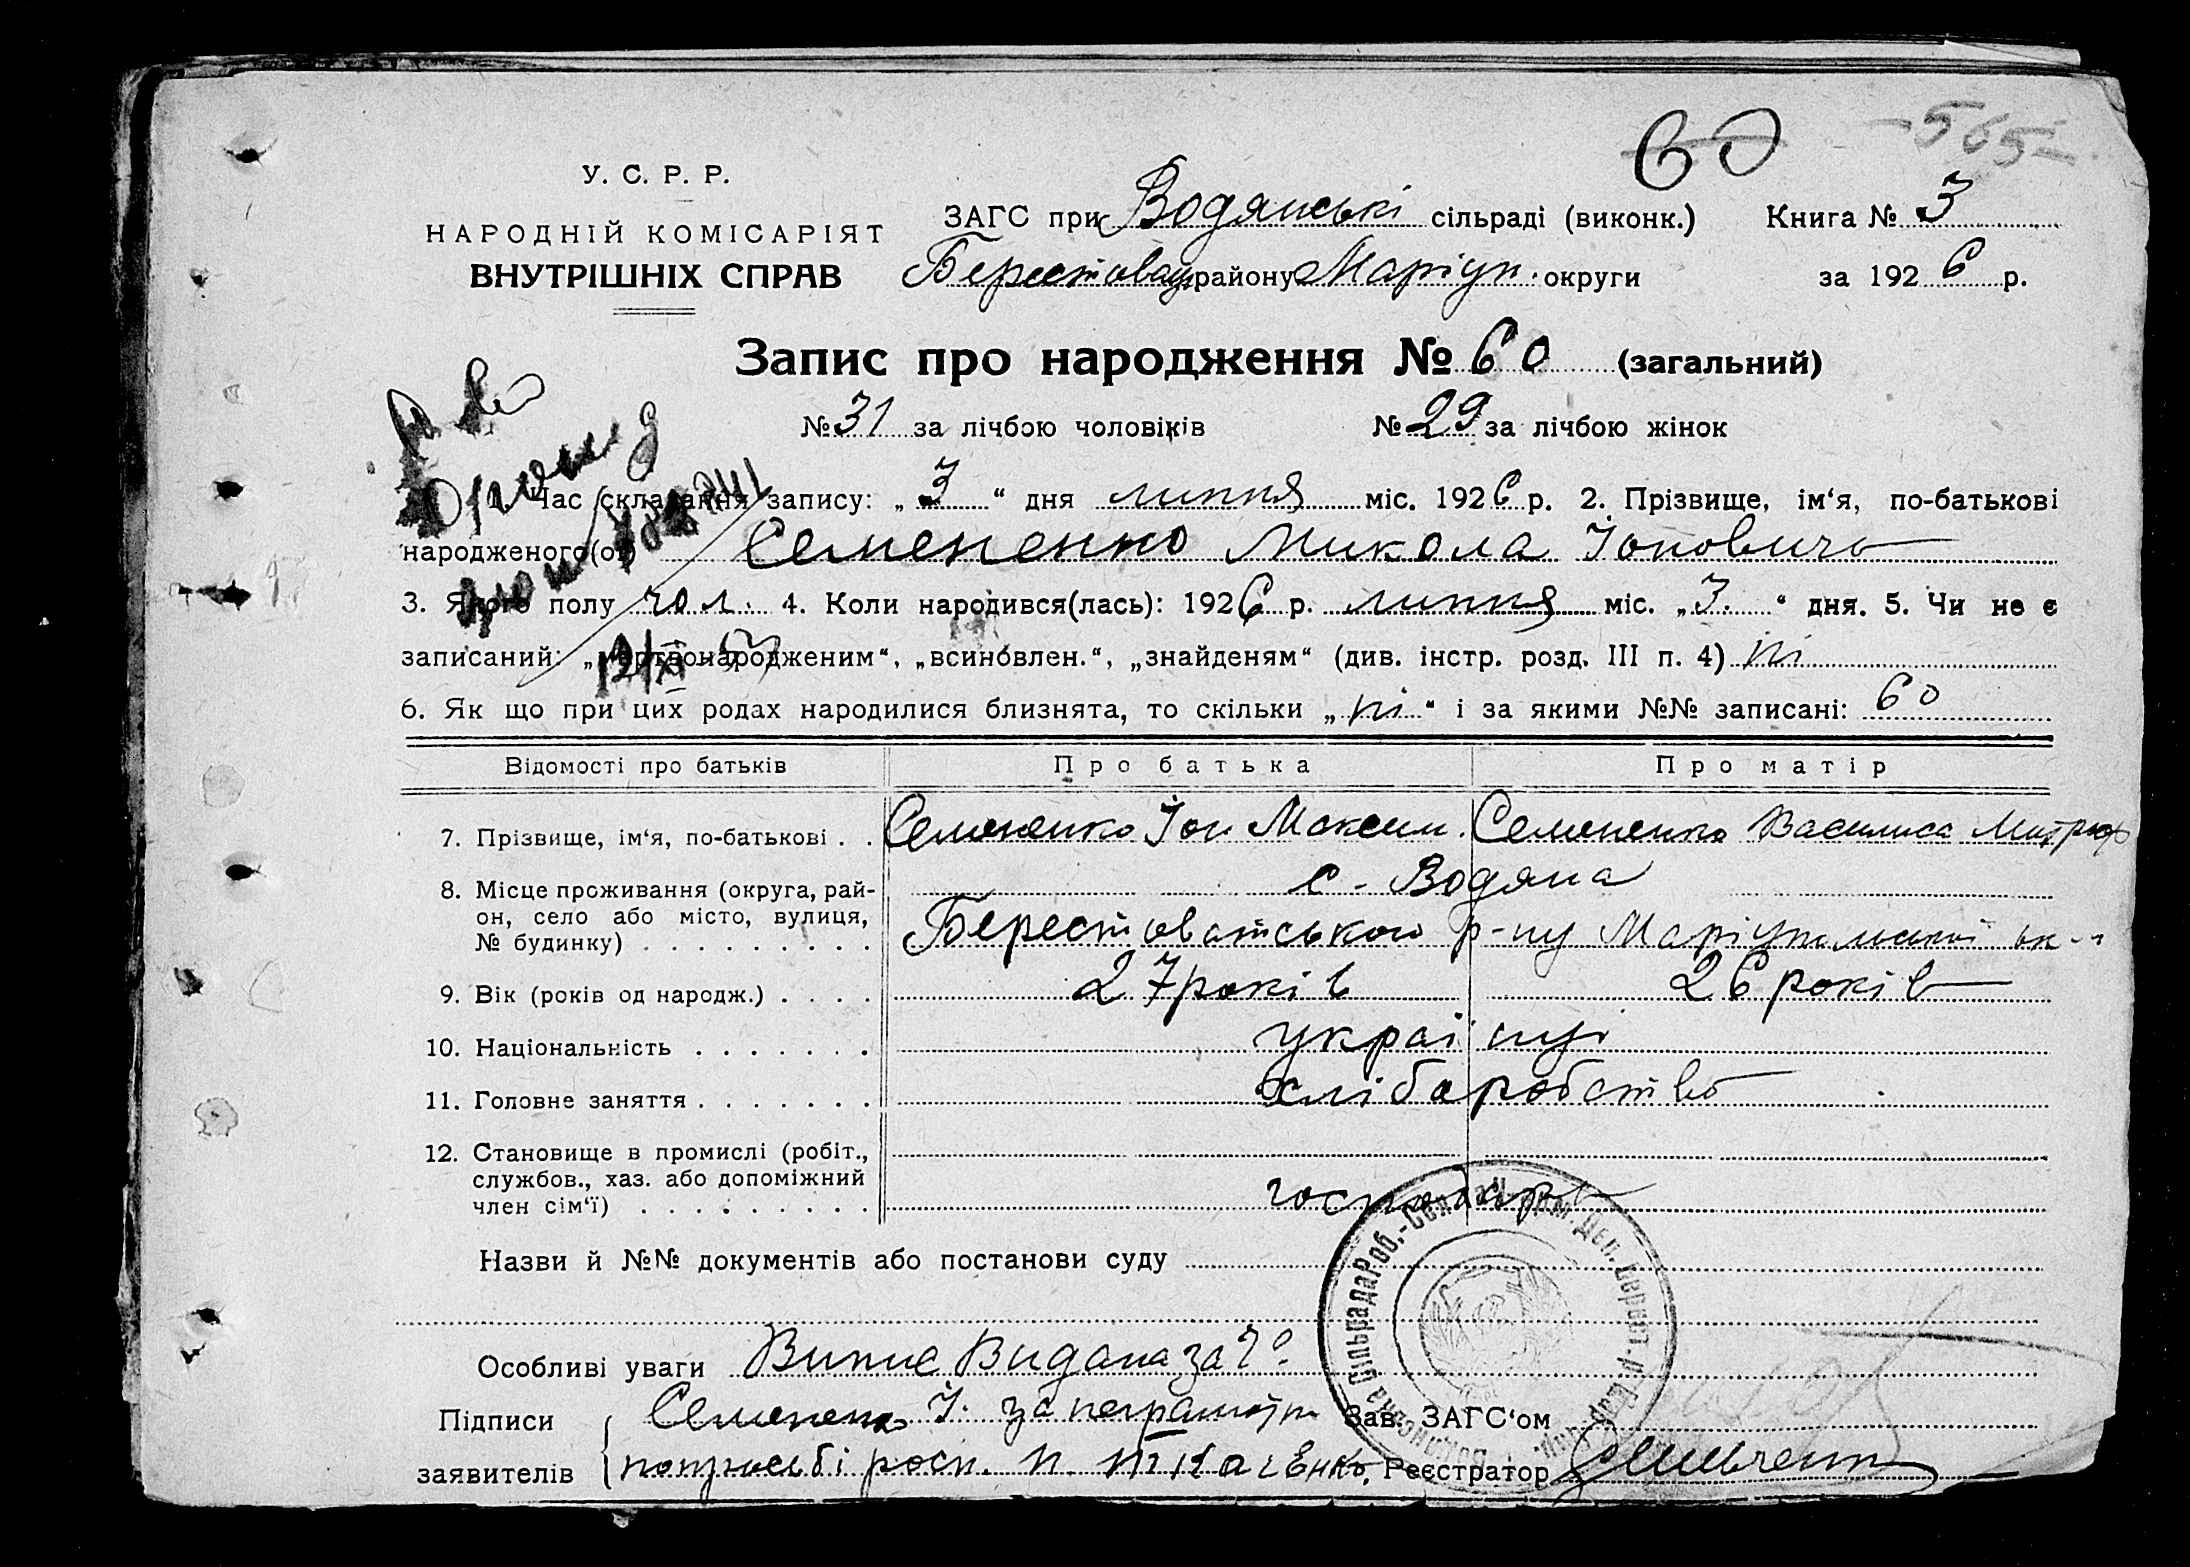 60 -565-
У. С. Р. Р.
НАРОДНІЙ КОМІСАРІЯТ
ВНУТРІШНІХ СПРАВ
ЗАГС при Водянські сільраді (виконк.) Книга № 3
Берестовац району Маріуп. округи за 1926 р.
Запис про народження № 60 (загальний)
№ 31 за лічбою чоловіків № 29 за лічбою жінок
1. Час складання запису: „3“ дня липня міс. 1926 р. 2. Прізвище, ім‘я, по-батькові
народженого(ої) Семененко Микола Іонович
3. Якого полу чол. 4. Коли народився(лась): 1926 р. липня міс. „3.“ дня. 5. Чи не є
записаний: „мертвонародженим“, „всиновлен.“, „знайденям“ (див. інстр. розд. III п. 4) ні
6. Як що при цих родах народилися близнята, то скільки „ні“ і за якими №№ записані: 60
Відомості про батьків Про батька Про матір
7. Прізвище, ім‘я, по-батькові . . Семененко Іон Максим. Семененко Василиса
8. Місце проживання (округа, рай-
он, село або місто, вулиця,
№ будинку) . . . . . . . . .
с. Водяна
Берестоватського р-ну Маріупольської ок-и
9. Вік (років од народж.) . . . . 27 років 26 років
10. Національність . . . . . . . українці
11. Головне заняття . . . . . . . хліборобство
12. Становище в промислі (робіт.,
службов., хаз. або допоміжний
член сім‘ї) . . . . . . . . . господар
Назви й №№ документів або постанови суду
Особливі уваги Випис Видана за №
Підписи Семененко І. за неграмотн Зав. ЗАГС‘ом
заявителів попросьбі росп. П. Ткаченко, Реєстратор